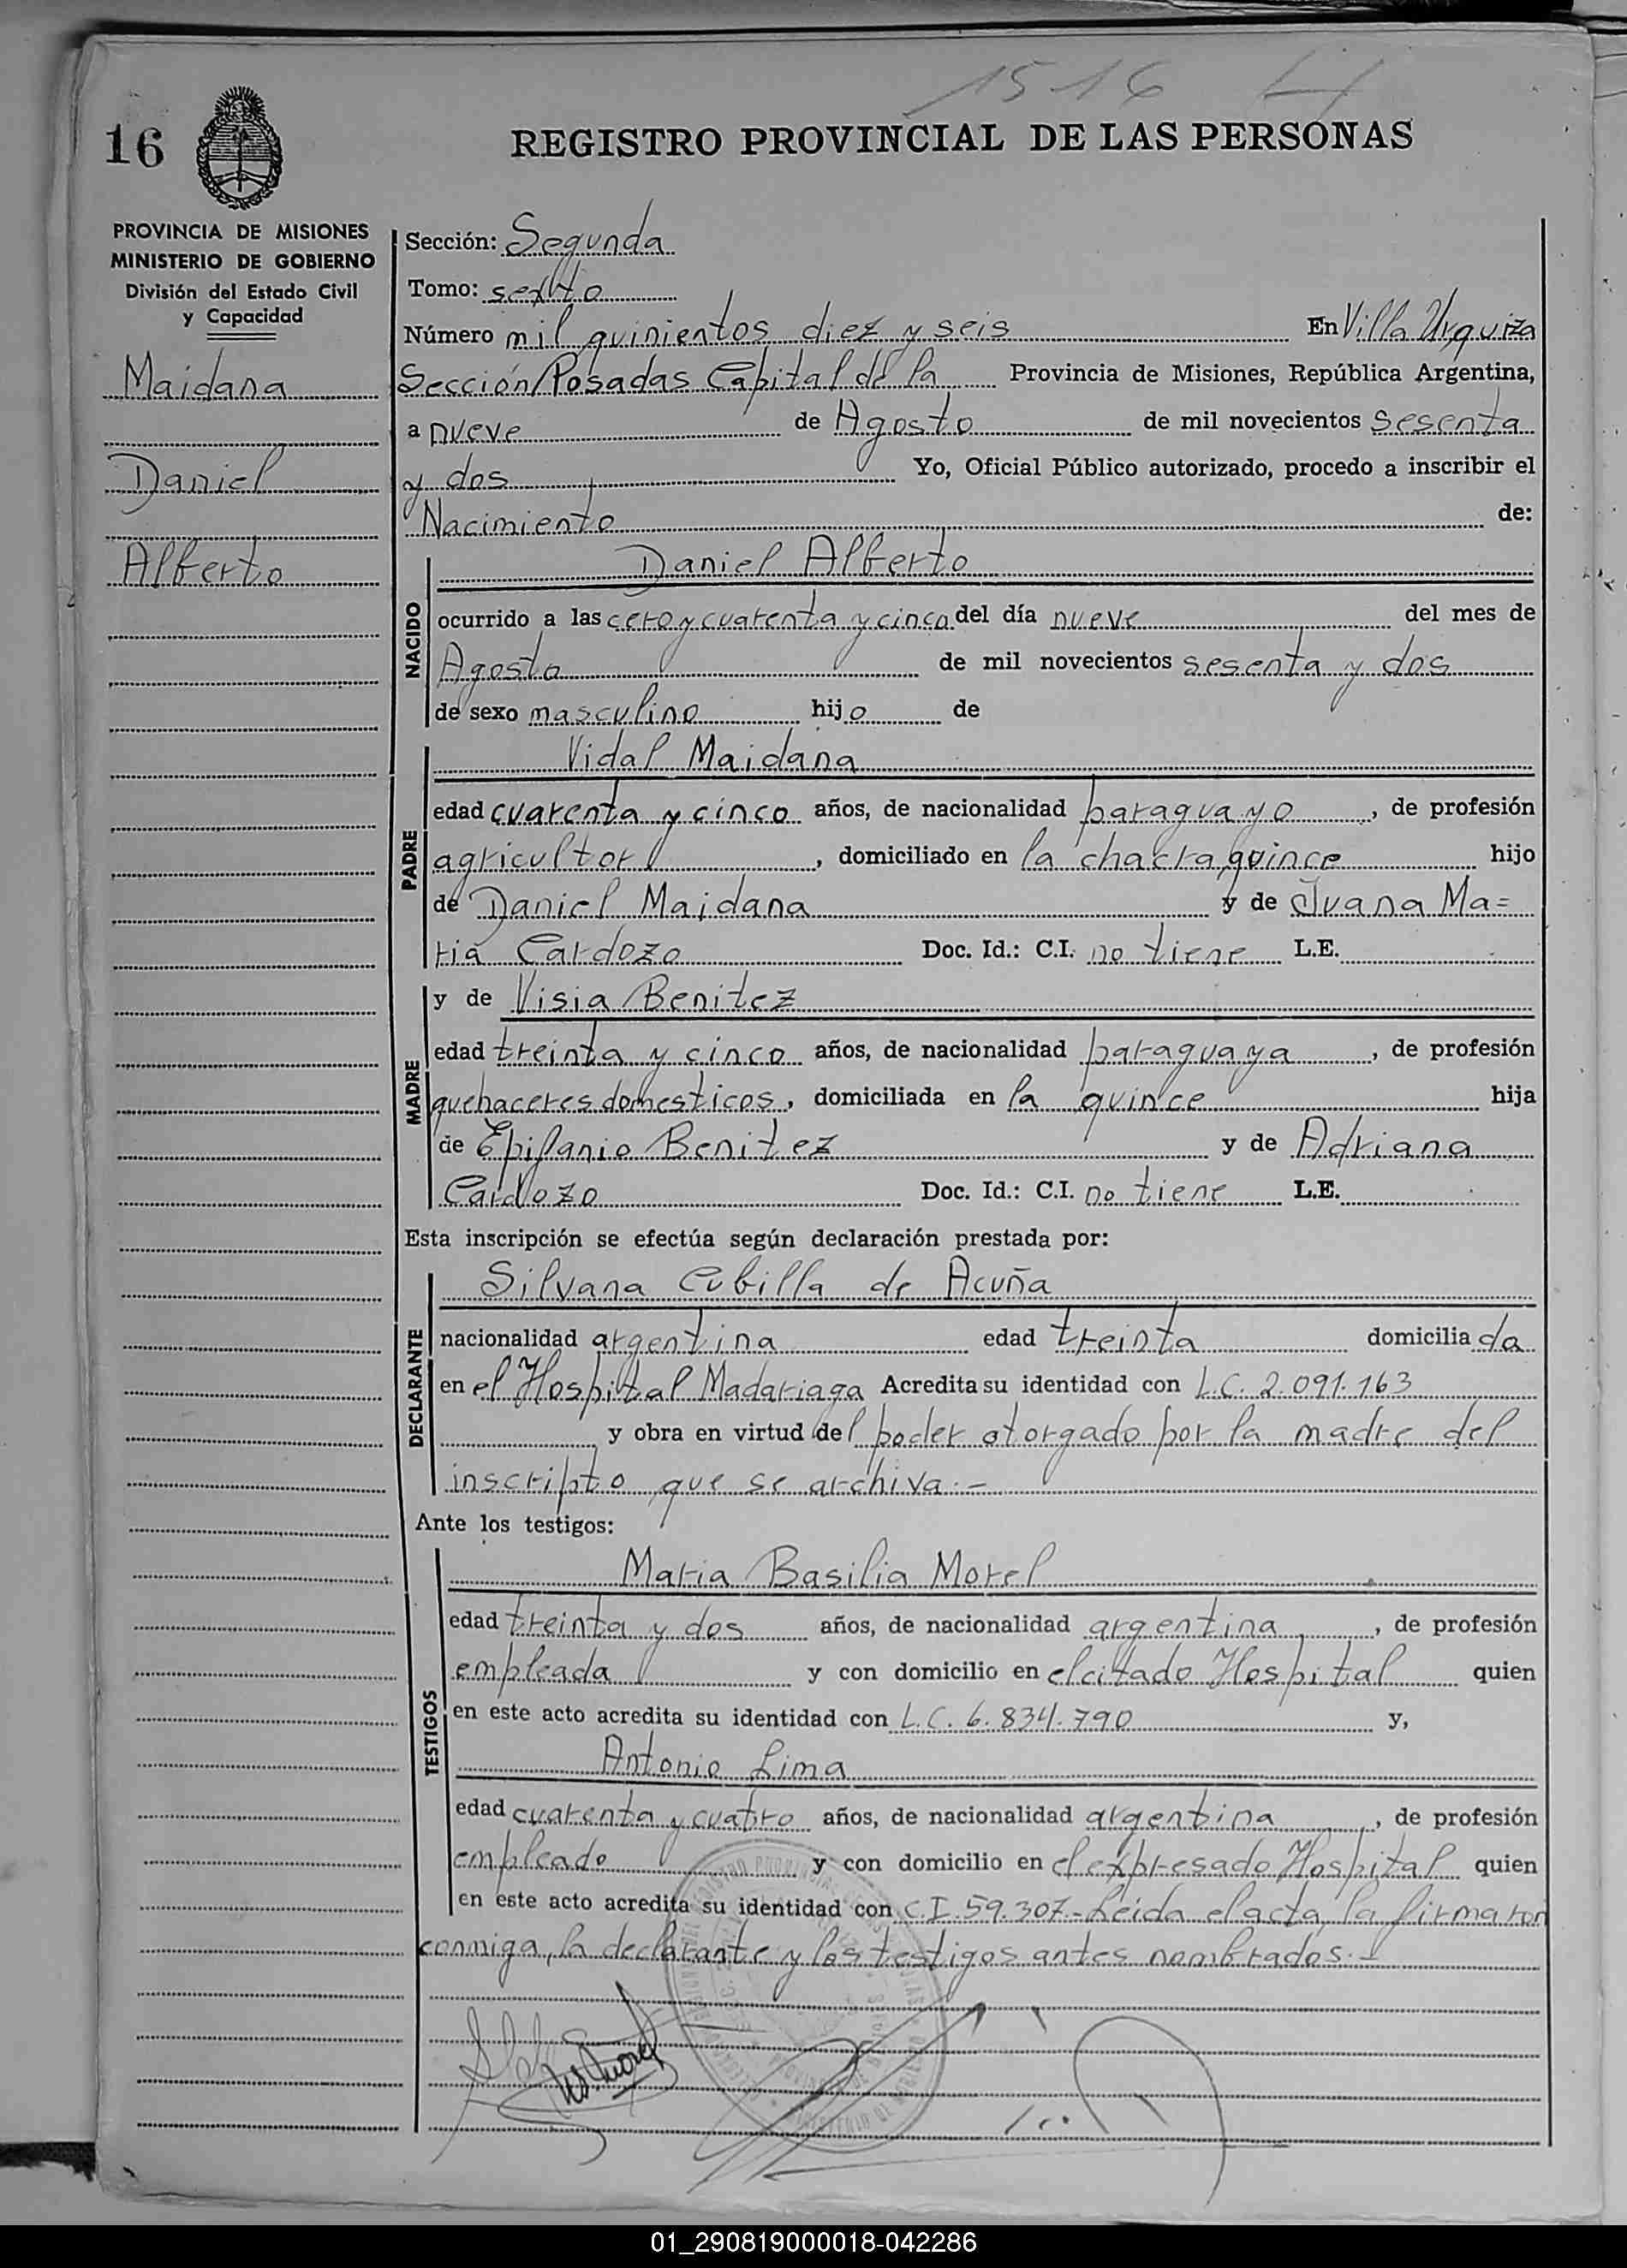 1516
16
REGISTRO PROVINCIAL DE LAS PERSONAS
PROVINCIA DE MISIONES
MINISTERIO DE GOBIERNO
División del Estado Civil
y Capacidad
Maidana
Daniel
Alberto
Sección: Segunda
Tomo: sexto
Número mil quinientos diez y seis En Villa Urquiza
Sección Posadas Capital de la Provincia de Misiones, República Argentina,
a nueve de Agosto de mil novecientos sesenta
y dos Yo, Oficial Público autorizado, procedo a inscribir el
Nacimiento de:
NACIDO
Daniel Alberto
ocurrido a las cero y cuarenta y cinco del día nueve del mes de
Agosto de mil novecientos sesenta y dos
de sexo masculino hijo de
PADRE
Vidal Maidana
edad cuarenta y cinco años, de nacionalidad paraguayo, de profesión
agricultor, domiciliado en la chacra quince hijo
de Daniel Maidana y de Juana Ma=
ria Cardozo Doc. Id.: C.I. no tiene L.E.
MADRE
y de Visia Benitez
edad treinta y cinco años, de nacionalidad paraguaya, de profesión
quehaceres domesticos, domiciliada en la quince hija
de Epifanio Benitez y de Adriana
Cardozo Doc. Id.: C.I. no tiene L.E.
Esta inscripción se efectúa según declaración prestada por:
DECLARANTE
Silvana Cubilla de Acuña
nacionalidad argentina edad treinta domiciliada
en el Hospital Madariaga Acredita su identidad con L.C. 2.091.163
y obra en virtud del poder otorgado por la madre del
inscripto que se archiva.-
Ante los testigos:
TESTIGOS
Maria Basilia Morel
edad treinta y dos años, de nacionalidad argentina, de profesión
empleada y con domicilio en el citado Hospital quien
en este acto acredita su identidad con L.C. 6.834.790 y,
Antonio Lima
edad cuarenta y cuatro años, de nacionalidad argentina, de profesión
empleado y con domicilio en el expresado Hospital quien
en este acto acredita su identidad con C.I. 59.307.- Leida el acta, la firmaron
conmigo, la declarante y los testigos antes nombrados.-
01_290819000018-042286